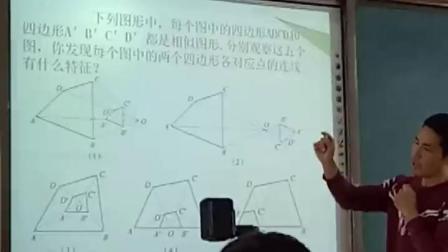 下列图形中，每个图中的四边形ABCD和
四边形A′B′C′D′都是相似图形.分别观察这五个
图，你发现每个图中的两个四边形各对应点的连线
有什么特征？
(1)
(2)
(3)
(4)